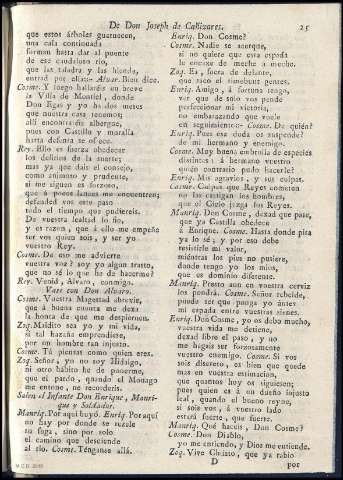 De Don Joseph de Cañizares.
25
que estos árboles guarnecen,
una cala continuada
forman hasta dar al puente
de ese caudaloso rio,
que las taladra y las hiende,
entrad por ellas. Alvar. Bien dice.
Cosme. Y luego hallaréis en breve
la Villa de Montiel, donde
Don Egas y yo ha dos meses
que nuestra casa tenemos;
allí encontraréis albergue,
pues con Castillo y muralla
hasta defensa se ofrece.
Rey. Ello es fuerza obedecer
los delirios de la suerte;
mas ya que dais el consejo,
como animoso y prudente,
si me siguen es forzoso,
que á pocos lances me encuentren;
defended vos este paso
todo el tiempo que pudiereis.
De vuestra lealtad lo fio,
y es razon, que á ello me empeñe
ser vos quien sois, y ser yo
vuestro Rey.
Cosme. De eso me advierte
vuestra voz? soy yo algun trasto,
que no sé lo que he de hacerme?
Rey. Venid, Alvaro, conmigo.
Vase con Don Alvaro.
Cosme. Vuestra Magestad abrevie,
que á buena cuenta me dexa
la honra de que me despienen.
Zaq. Maldito sea yo y mi vida,
si tal hazaña emprendiese,
por un hombre tan injusto.
Cosme. Tú piensas como quien eres.
Zaq. Señor, yo no soy Hidalgo,
ni otro hábito he de ponerme,
que el pardo, quando el Monago
me entone, ne recorderis.
Salen el Infante Don Enrique, Manri-
que y Soldados.
Manriq. Por aquí huyó. Enriq. Por aquí
no hay por donde se rezele
su fuga, sino por solo
el camino que desciende
al rio. Cosme. Ténganse allá.
Enriq. Don Cosme?
Cosme. Nadie se acerque,
si no quiere que esta espada
le encaxe de meche a meche.
Zaq. Ea, fuera de delante,
que saco el tinebunt gentes.
Enriq. Amigo, á fortuna tengo,
ver que de solo vos pende
perfeccionar mi victoria,
no embarazando que vuele
en seguimiento- Cosme. De quién?
Enriq. Pues esa duda os suspende?
de mi hermano y enemigo.
Cosme. Muy buena embrolla de especies
distintas: á hermano vuestro
quién contrario pudo hacerle?
Enriq. Mis agravios, y sus culpas.
Cosme. Culpas que Reyes cometen
no las castigan los hombres,
que al Cielo juzga los Reyes.
Manriq. Don Cosme, dexad que pase,
que ya Castilla obedece
á Enrique. Cosme. Hasta donde pisa
ya lo sé; y por eso debe
resistirle mi valor,
miéntras los pies no pusiere,
donde tengo yo los mios,
que es dominio diferente.
Manriq. Presto aun en vuestra cerviz
los pondrá. Cosme. Señor rebelde,
puede ser que ponga yo ántes
mi espada entre vuestras sienes.
Enriq. Don Cosme, yo os debo mucho,
vuestra vida me detiene,
dexad libre el paso, y no
me hagais ser forzosamente
vuestro enemigo. Cosme. Si vos
sois discreto, es bien que quede
mas en vuestra estimacion,
que quantos hoy os siguiesen;
pues quien es á un dueño injusto
leal, quando el bueno reyne,
si sois vos, á vuestro lado
estará fuerte, que fuerte.
Manriq. Qué haceis, Don Cosme?
Cosme. Don Diablo,
yo me entiendo, y Dios me entiende.
Zaq. Vive Christo, que ya rabio
D
por